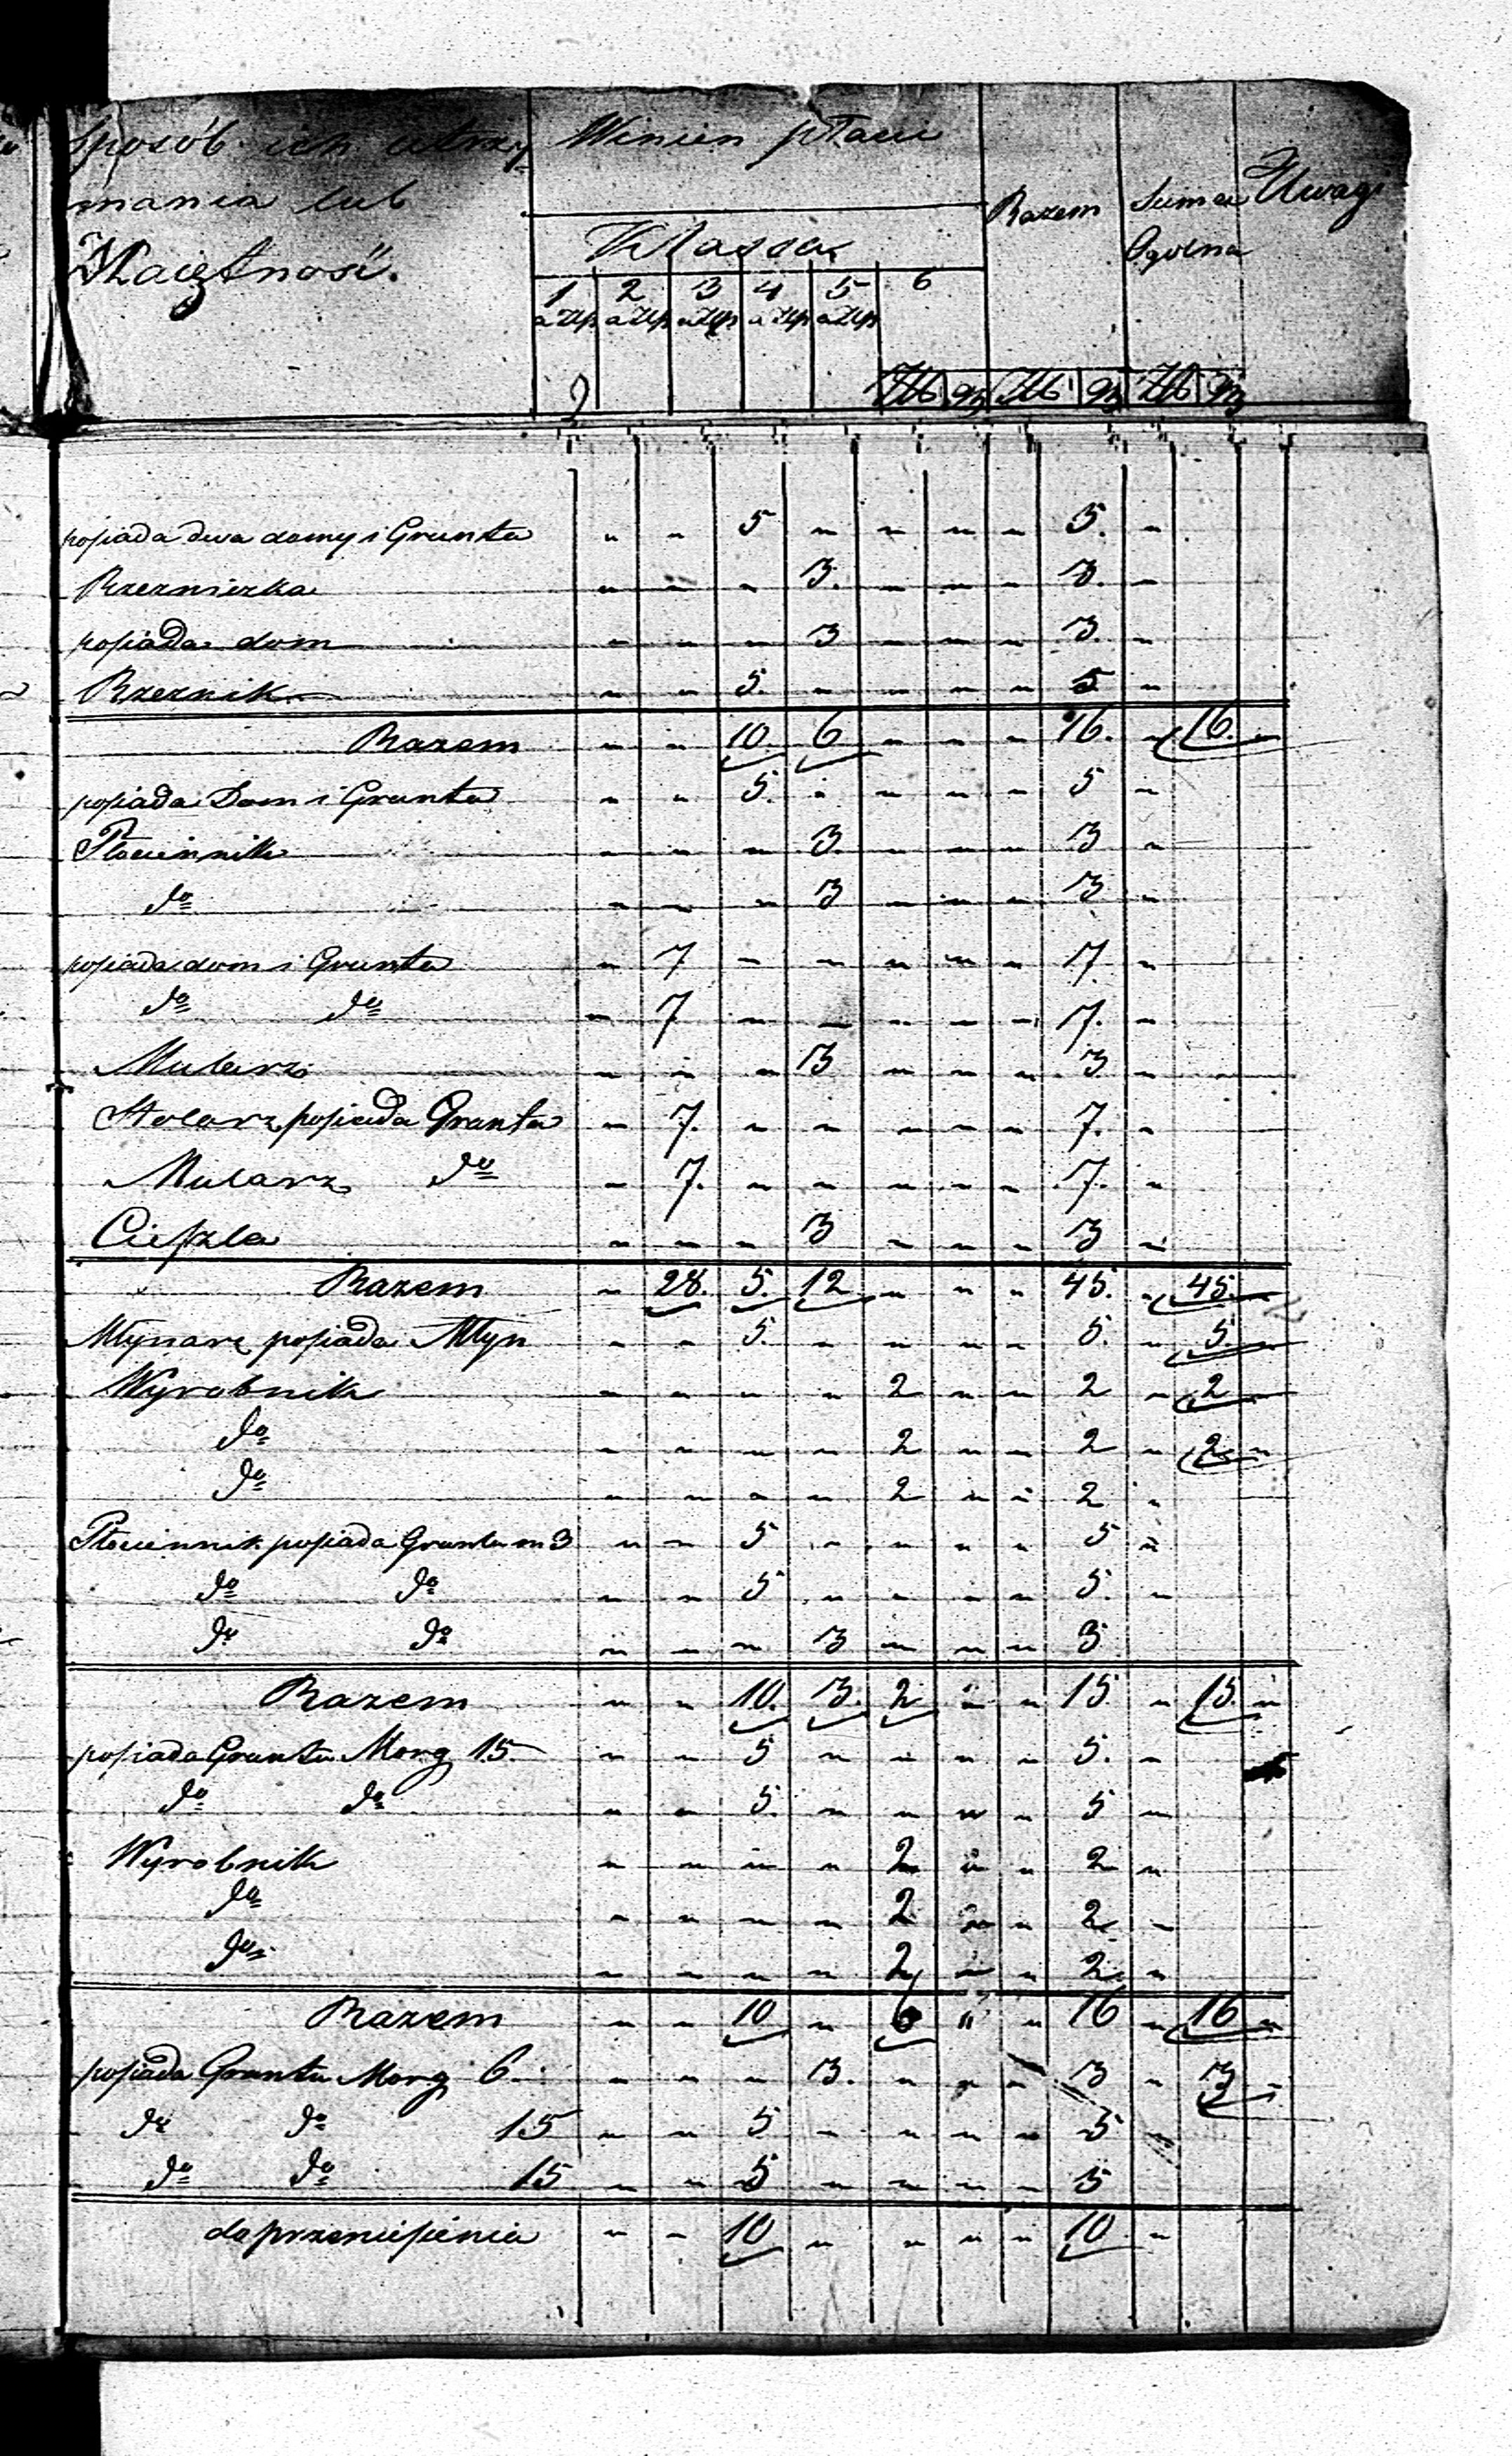 sposób ich utrzy
mania lub
Maiętnosć.
Winien płacić
Klassa
1 2 3 4 5 6
a Złp a Złp a Złp a Złp a Złp
Razem
Suma
Ogolna
Uwagi
Zł gr Zł gr Zł gr
posiada dwa domy i Grunta " " 5 " " " " 5. "
Rzezniczka " " " 3. " " " 3. "
posiada dom " " " 3 " " " 3. "
Rzeznik " " 5. " " " " 5 "
Razem " " 10. 6 " " " 16. " 16. "
posiada Dom i Grunta " " 5. " " " " 5 "
Płociennik " " " 3. " " " 3 "
do " " " 3 " " " 3 "
posiada dom i Grunta " 7 " " " " " 7. "
do do " 7 " " " " " 7. "
Mularz " " " 3 " " " 3 "
Stolarz posiada Grunta " 7. " " " " " 7. "
Mularz do " 7. " " " " " 7. "
Cieszla " " " 3 " " " 3 "
Razem " 28. 5. 12 " " " 45. " 45. "
Młynarz posiada Młyn " " 5. " " " " 5. " 5. "
Wyrobnik " " " " 2 " " 2 " 2 "
do " " " " 2 " " 2 " 2 "
do " " " " 2 " " 2 "
Płociennik posiada Gruntu m 3 " " 5 " " " " 5 "
do do " " 5 " " " " 5. "
do do " " " 3 " " " 3
Razem " " 10. 3. 2 " " 15. " 15. "
posiada Gruntu Morg 15. " " 5 " " " " 5. "
do do " " 5. " " " " 5 "
Wyrobnik " " " " 2 " " 2 "
do " " " " 2 " " 2 "
do " " " " 2 " " 2 "
Razem " " 10 " 6 " " 16 " 16 "
posiada Gruntu Morg 6. " " " 3. " " " 3 " 3 "
do do 15 " " 5 " " " " 5 "
do do 15 " " 5 " " " " 5
do przeniesienia " " 10 " " " " 10 "